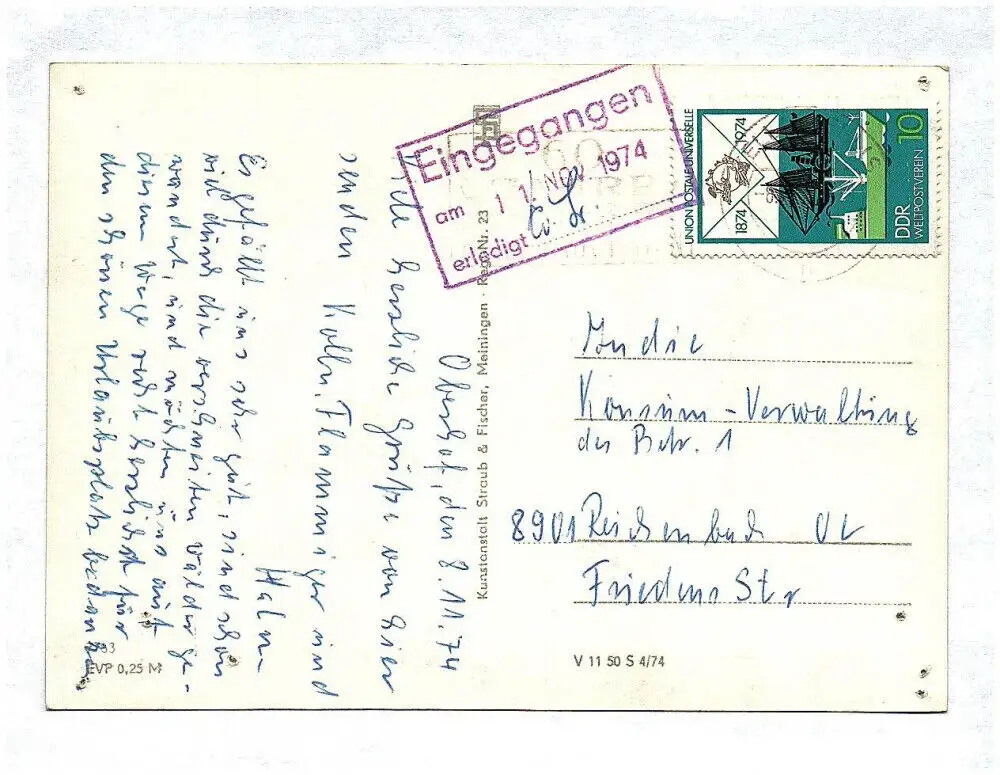 Oberhof, den 8.11.74
Viele herzliche Grüße von hier
senden Kolln. Flammiger und
Hahn
Es gefällt uns sehr gut, sind schon
viel durch die verschneiten Wälder ge-
wandert, und möchten uns auf
diesem Wege recht herzlichst für
den schönen Urlaubsplatz bedanken
EVP 0,25 M
Kunstanstalt Straub & Fischer, Meiningen · Reg.-Nr. 23
Eingegangen
am 11. NOV. 1974
erledigt
UNION POSTALE UNIVERSELLE
1874 1974
DDR 10
WELTPOSTVEREIN
An die
Konsum-Verwaltung
des Betr. 1
8901 Reichenbach OL
Friedens Str
V 11 50 S 4/74